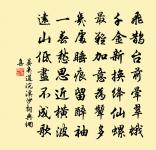 飛鵲臺前暈翠蛾
千金新換絳仙螺
最難加意為顰多
幾處睡痕留醉袖
一春愁思近橫波
遠山低盡不成歌
晏幾道浣溪沙